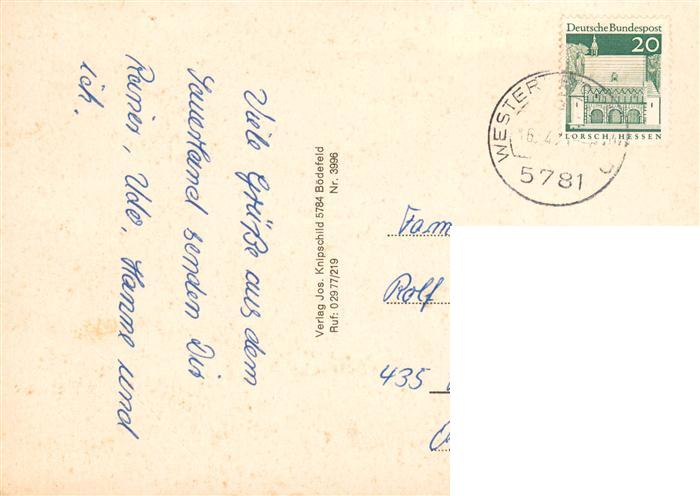 Viele Grüße aus dem
Sauerland senden Dir
Rainer, Udo, Hanne und
ich.
Verlag Jos. Knipschild 5784 Bödefeld
Nr. 3996
Ruf: 0 29 77/219
Deutsche Bundespost
20
LORSCH/HESSEN
WESTER
5781
Fam
Rolf
435